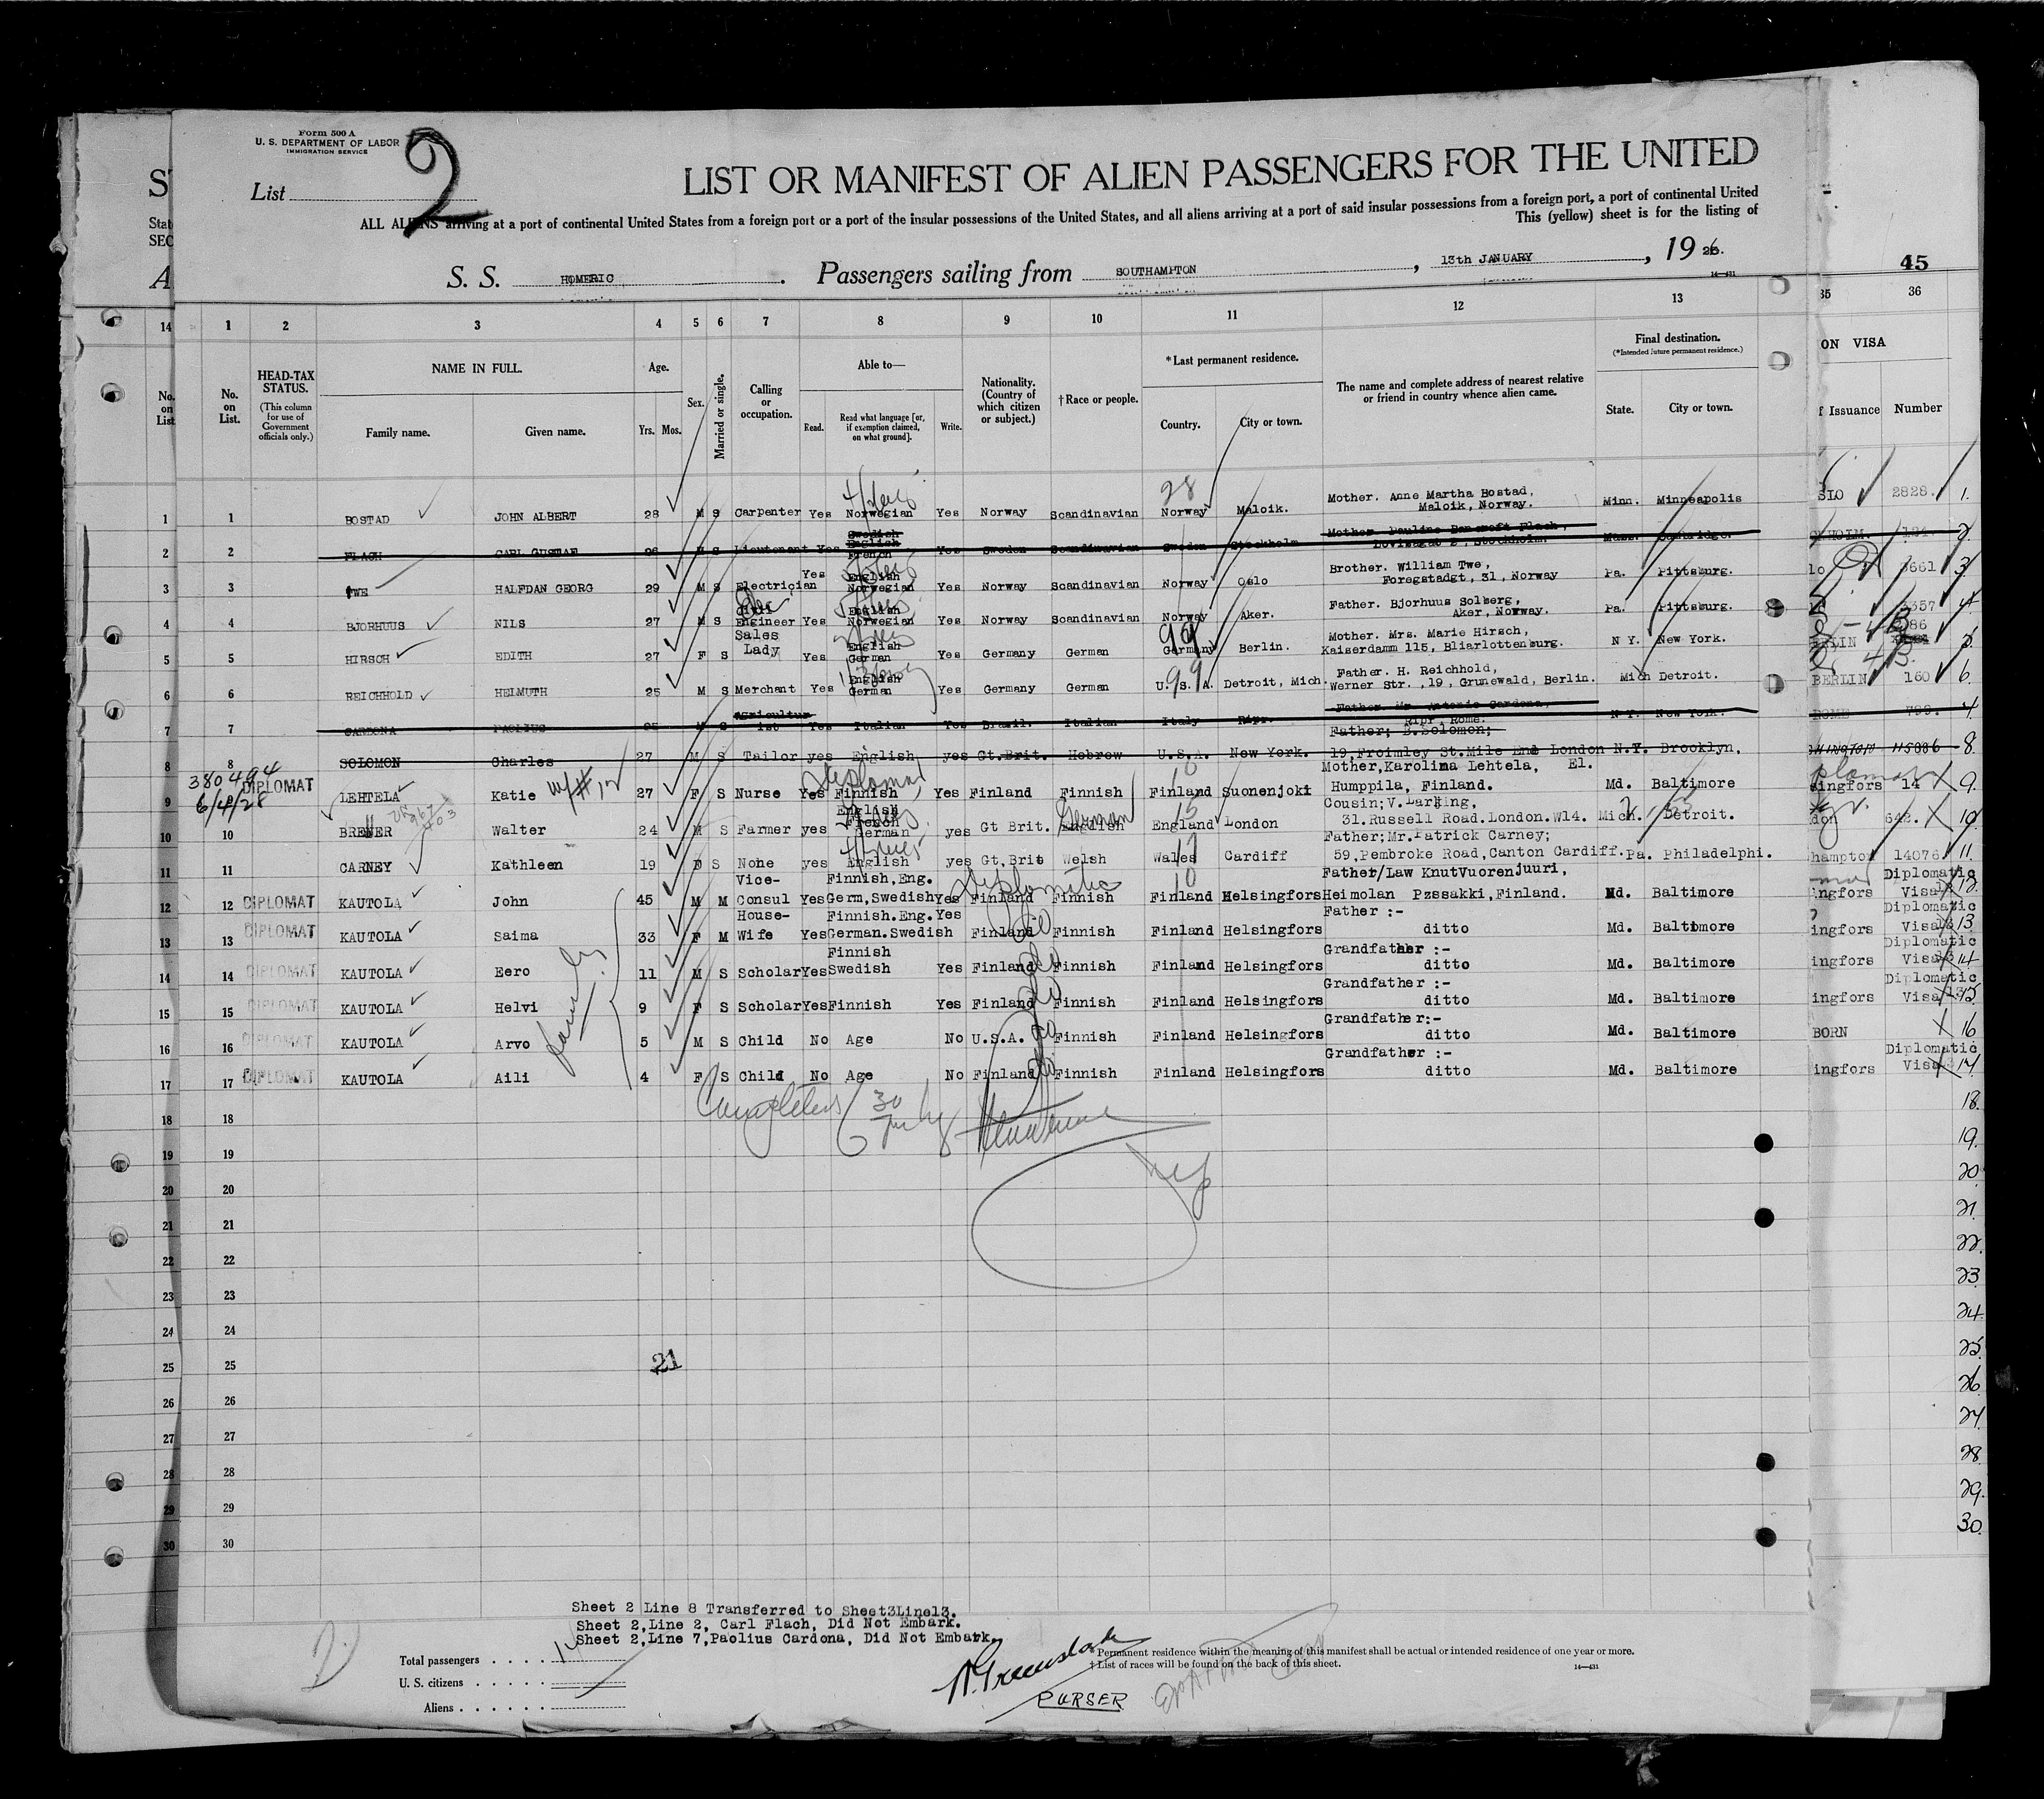 Form 500 A
U. S. DEPARTMENT OF LABOR
IMMIGRATION SERVICE
List
2
LIST OR MANIFEST OF ALIEN PASSENGERS FOR THE UNITED
ALL ALIENS arriving at a port of continental United States from a foreign port or a port of the insular possessions of the United States, and all aliens arriving at a port of said insular possessions from a foreign port, a port of continental United
This (yellow) sheet is for the listing of
S. S. HOMERIC. Passengers sailing from SOUTHAMPTON, 13th JANUARY, 1926.
45
1 2 3 4 5 6 7 8 9 10 11 12 13 35 36
No. on List.
HEAD-TAX STATUS.
(This column for use of Government officials only.)
NAME IN FULL.
Family name. Given name.
Age.
Yrs. Mos.
Sex.
Married or single.
Calling or occupation.
Able to—
Read. Read what language [or, if exemption claimed, on what ground]. Write.
Nationality. (Country of which citizen or subject.)
†Race or people.
*Last permanent residence.
Country. City or town.
The name and complete address of nearest relative or friend in country whence alien came.
Final destination.
(*Intended future permanent residence.)
State. City or town.
ON VISA
f Issuance Number
1 BOSTAD JOHN ALBERT 28 M S Carpenter Yes Norwegian Yes Norway Scandinavian Norway Maloik. Mother. Anne Martha Bostad, Maloik, Norway. Minn. Minneapolis SLO 2828. 1.
2 FLACH CARL GUSTAF 26 M S Lieutenant Yes Swedish English French Yes Sweden Scandinavian Sweden Stockholm Mother Pauline Bancroft Flach, Stockholm. Mass. Cambridge. HOLM. 2
3 TWE HALFDAN GEORG 29 M S Electrician Yes English Norwegian Yes Norway Scandinavian Norway Oslo Brother. William Twe, Foregstadgt, 31, Norway Pa. Pittsburg. lo 3661 3
4 BJORHUUS NILS 27 M S Civil Engineer Yes English Norwegian Yes Norway Scandinavian Norway Aker. Father. Bjorhuus Solberg, Aker, Norway. Pa. Pittsburg. 3357 4
5 HIRSCH EDITH 27 F S Sales Lady Yes English German Yes Germany German Germany Berlin. Mother. Mrs. Marie Hirsch, Kaiserdamm 115, Bliarlottenburg. N Y. New York. ERLIN 5
6 REICHHOLD HELMUTH 25 M S Merchant Yes English German Yes Germany German U.S.A. Detroit, Mich. Father. H. Reichhold, Werner Str. ,19, Grunewald, Berlin. Mich Detroit. BERLIN 160 6.
7 CARDONA PAOLIUS 25 M S Agricultur ist Yes Italian Yes Brazil. Italian Italy Ripr. Father. Mr. Antonio Cardona, Ripr, Rome. N.Y. New York. ROME 799.
8 SOLOMON Charles 27 M S Tailor yes English yes Gt.Brit. Hebrew U.S.A. New York. Father; B.Solomon; 19,Froimley St.Mile End London N.Y. Brooklyn. 8.
380494
6/4/28
9 DIPLOMAT LEHTELA Katie 27 F S Nurse Yes Finnish Yes Finland Finnish Finland Suonenjoki Mother,Karolina Lehtela, El. Humppila, Finland. Md. Baltimore singfors 14 9.
10 BRENER Walter 24 M S Farmer yes English French German yes Gt Brit. English German England London Cousin;V.Larking, 31.Russell Road.London.W14. Mich. Detroit. don 642. 10
11 CARNEY Kathleen 19 F S None yes English yes Gt,Brit Welsh Wales Cardiff Father;Mr.Patrick Carney; 59,Pembroke Road,Canton Cardiff. Pa. Philadelphi. hampton 14076 11.
12 DIPLOMAT KAUTOLA John 45 M M Vice-Consul Yes Finnish,Eng. Germ,Swedish Yes Finland Finnish Finland Helsingfors Father/Law KnutVuorenjuuri, Heimolan Pzssakki,Finland. Md. Baltimore ingfors Diplomatic Visa 12.
13 DIPLOMAT KAUTOLA Saima 33 F M House-Wife Yes Finnish.Eng. German.Swedish Yes Finland Finnish Finland Helsingfors Father :- ditto Md. Baltimore ingfors Diplomatic Visa 13
14 DIPLOMAT KAUTOLA Eero 11 M S Scholar Yes Finnish Swedish Yes Finland Finnish Finland Helsingfors Grandfather :- ditto Md. Baltimore ingfors Diplomatic Visa 14
15 DIPLOMAT KAUTOLA Helvi 9 F S Scholar Yes Finnish Yes Finland Finnish Finland Helsingfors Grandfather :- ditto Md. Baltimore ingfors Diplomatic Visa 15
16 DIPLOMAT KAUTOLA Arvo 5 M S Child No Age No U.S.A. Finnish Finland Helsingfors Grandfather:- ditto Md. Baltimore BORN 16
17 DIPLOMAT KAUTOLA Aili 4 F S Child No Age No Finland Finnish Finland Helsingfors Grandfather :- ditto Md. Baltimore ingfors Diplomatic Visa 17
18 18.
19 19.
20 20.
21 21.
22 22.
23 23.
24 24.
25 21 25.
26 26.
27 27
28 28
29 29.
30 30.
Sheet 2 Line 8 Transferred to Sheet3Line13.
Sheet 2,Line 2, Carl Flach, Did Not Embark.
Sheet 2,Line 7,Paolius Cardona, Did Not Embark.
Total passengers
U. S. citizens
Aliens
PURSER
* Permanent residence within the meaning of this manifest shall be actual or intended residence of one year or more.
† List of races will be found on the back of this sheet.
14—431